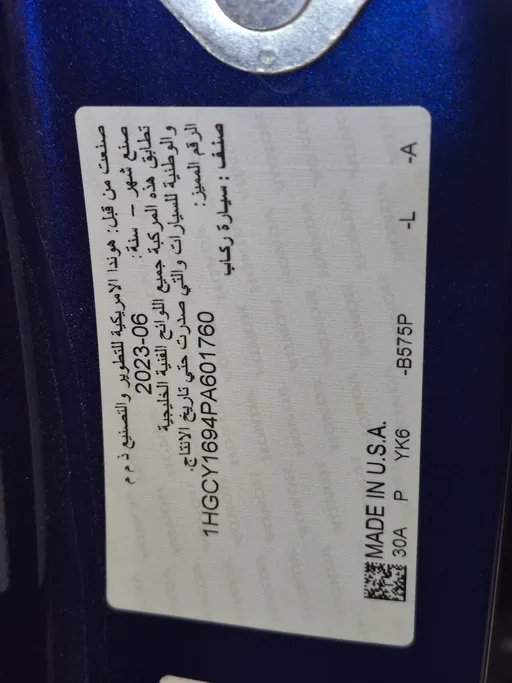 صنعت من قبل: هوندا الامريكية للتطوير والتصنيع ذ م م
صنع شهر - سنة: 2023-06
تطابق هذه المركبة جميع اللوائح الفنية الخليجية
والوطنية للسيارات والتي صدرت حتي تاريخ الانتاج.
الرقم المميز: 1HGCY1694PA601760
صنف : سيارة ركاب
MADE IN U.S.A.
30A P YK6 -B575P -L -A